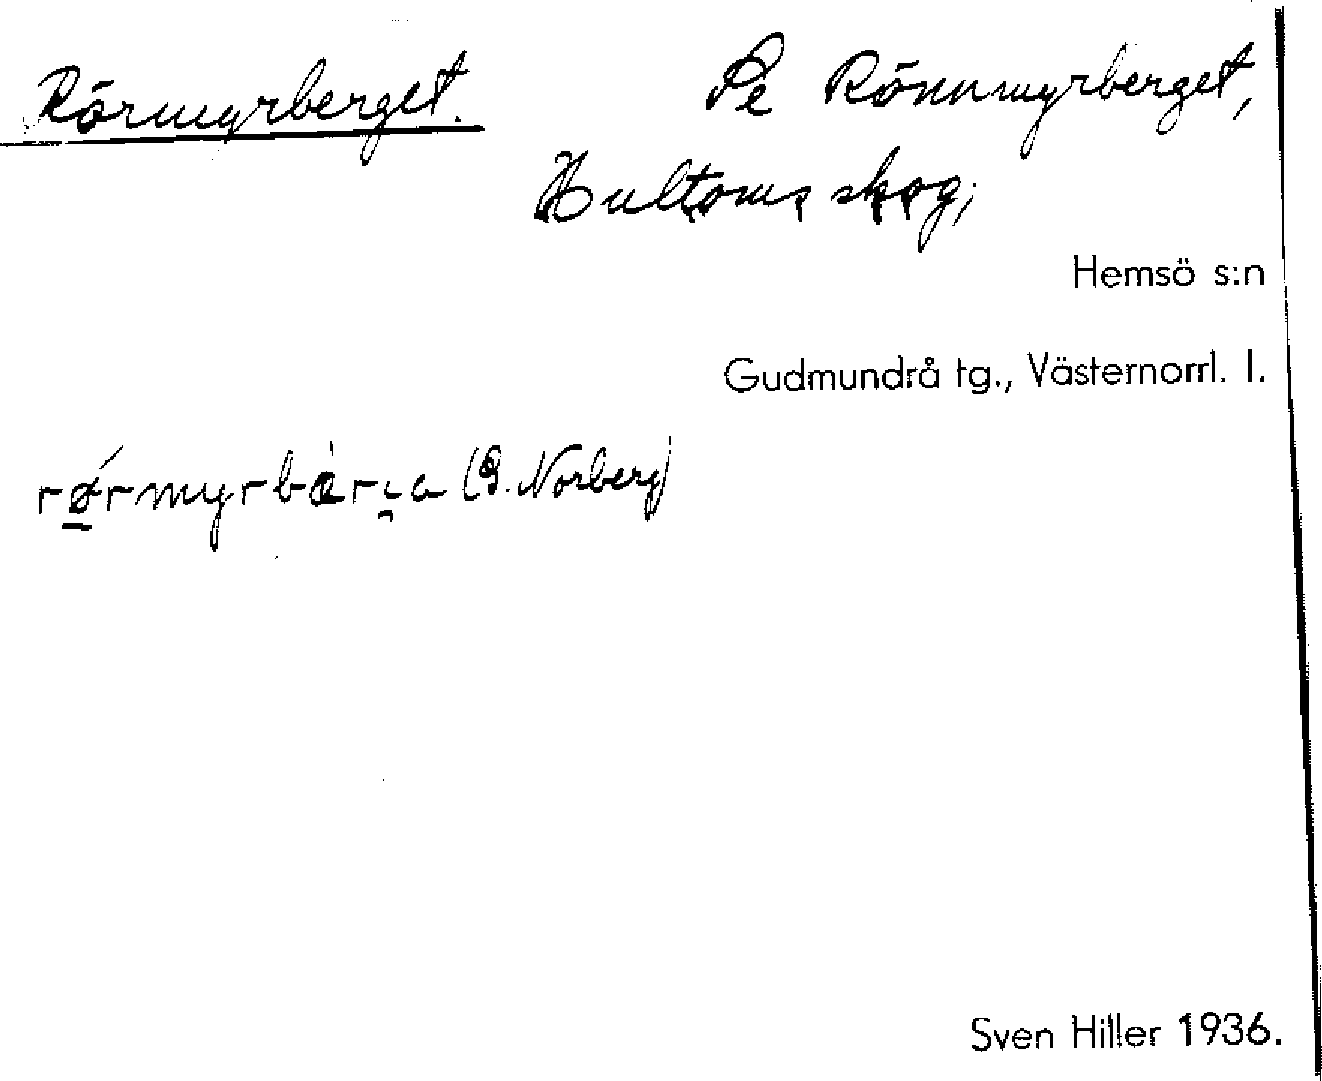 Rörmyrberget. På Rönnmyrberget,
Hultoms skog,
Hemsö s:n
Gudmundrå tg., Västernorrl. l.
(G. Norberg)
Sven Hiller 1936.